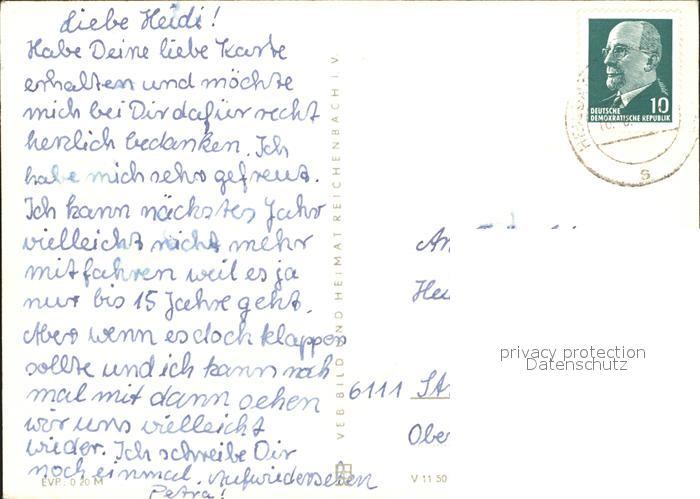 Liebe Heidi!
Habe Deine liebe Karte
erhalten und möchte
mich bei Dir dafür recht
herzlich bedanken. Ich
habe mich sehr gefreut.
Ich kann nächstes Jahr
vielleicht nicht mehr
mitfahren weil es ja
nur bis 15 Jahre geht.
Aber wenn es doch klappen
sollte und ich kann noch
mal mit dann sehen
wir uns vielleicht
wieder. Ich schreibe Dir
noch einmal. Aufwiedersehen
Petra!
EVP: 0 20 M
VEB BILD UND HEIMAT REICHENBACH I. V.
V 11 50
10
DEUTSCHE
DEMOKRATISCHE REPUBLIK
An
6111
Ober
privacy protection
Datenschutz